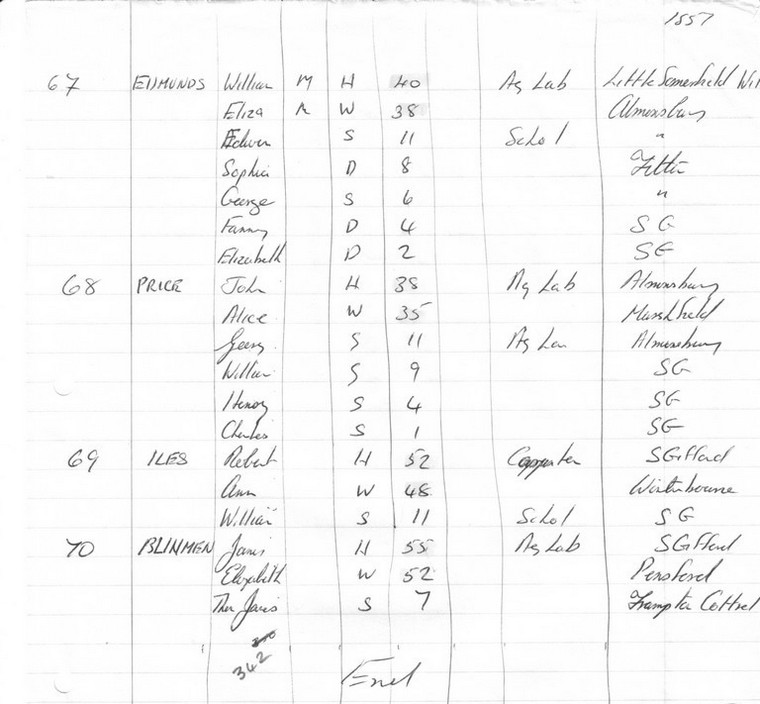 1557
67 EDMUNDS William M H 40 Ag Lab Little Somerfield Wil
Eliza M W 38 Almonsbury
Edwin S 11 Schol "
Sophia D 8
George S 6 "
Fanny D 4 SG
Elizabeth D 2 SG
68 PRICE John H 38 Ag Lab Almonsbury
Alice W 35 Marshfield
S 11 Ag Lab Almonsbury
William S 9 SG
Henry S 4 SG
Charles S 1 SG
69 ILES Robert H 52 Carpenter SGifford
Ann W 48 Winterbourne
William S 11 Schol SG
70 BLINMEN James H 55 Ag Lab SGifford
Elizabeth W 52 Pensford
James S 7 Frampton Cottrel
342
End